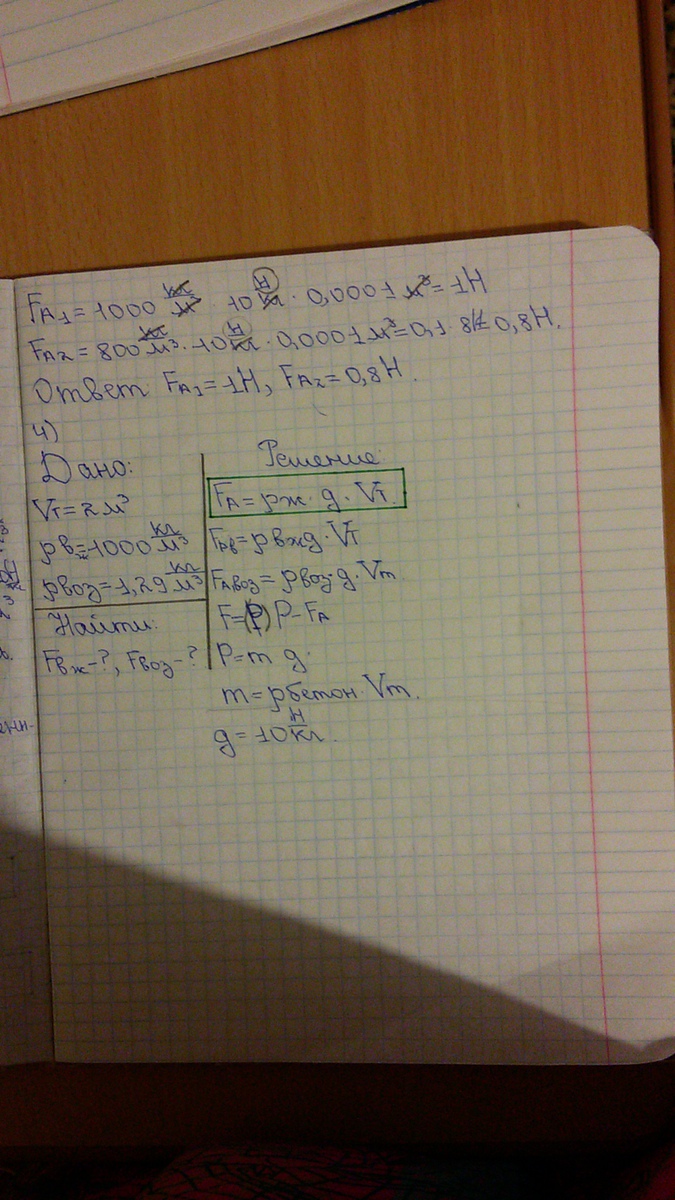 F_A1 = 1000 кг/м³ · 10 Н/кг · 0,0001 м³ = 1Н
F_A2 = 800 кг/м³ · 10 Н/кг · 0,0001 м³ = 0,1 · 8Н = 0,8Н.
Ответ F_A1 = 1Н, F_A2 = 0,8Н.
4)
Дано:
Vт = 2м³
ρв = 1000 кг/м³
ρвоз = 1,29 кг/м³
Найти:
Fвж - ?, Fвоз - ?
Решение:
F_A = ρж · g · Vт.
F_Aв = ρвжg · Vт
F_Aвоз = ρвоз · g · Vт.
F = (P) P - F_A
P = m g.
m = ρбетон · Vт.
g = 10 Н/кг.